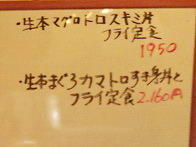 ・生本マグロトロスキミ丼
フライ定食
1950
・生本まぐろカマトロすき身丼と
フライ定食2.160円